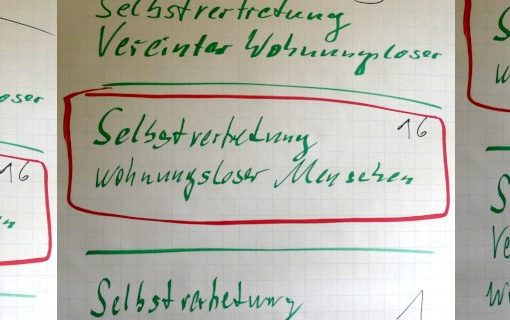 Selbstvertretung
Vereinter Wohnungsloser
16
Selbstvertretung
wohnungsloser Menschen
Selbstvertretung
1
oser
16
en
S
w
S
Ve
w